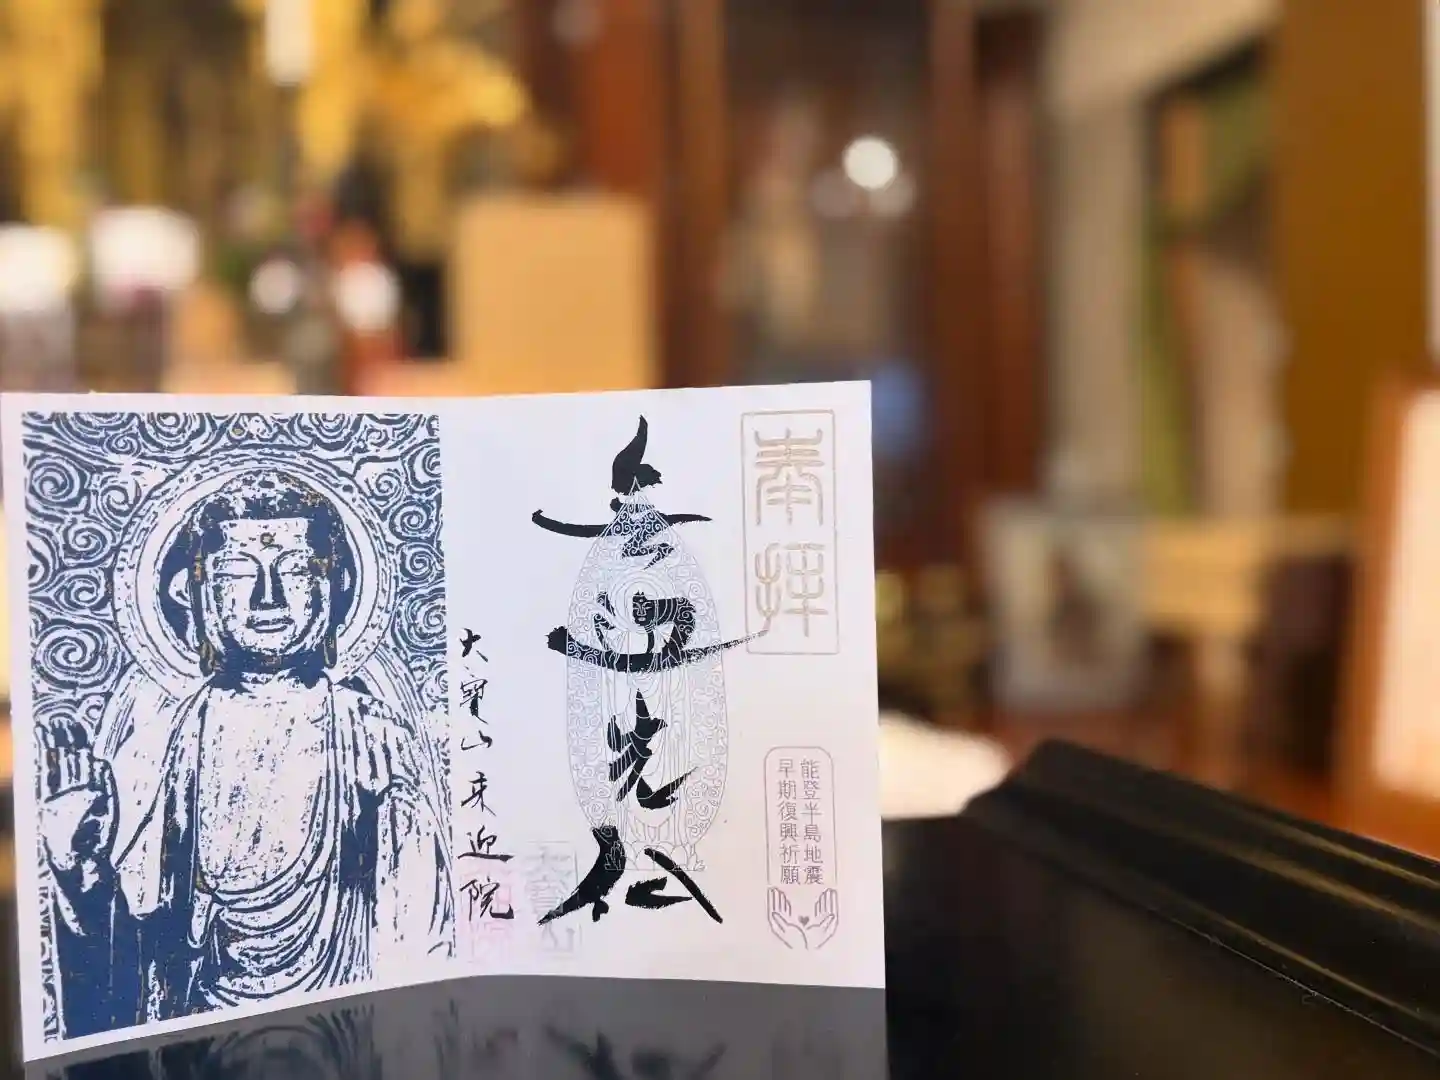 奉拝
無量光仏
能登半島地震
早期復興祈願
大寶山来迎院
大寶山